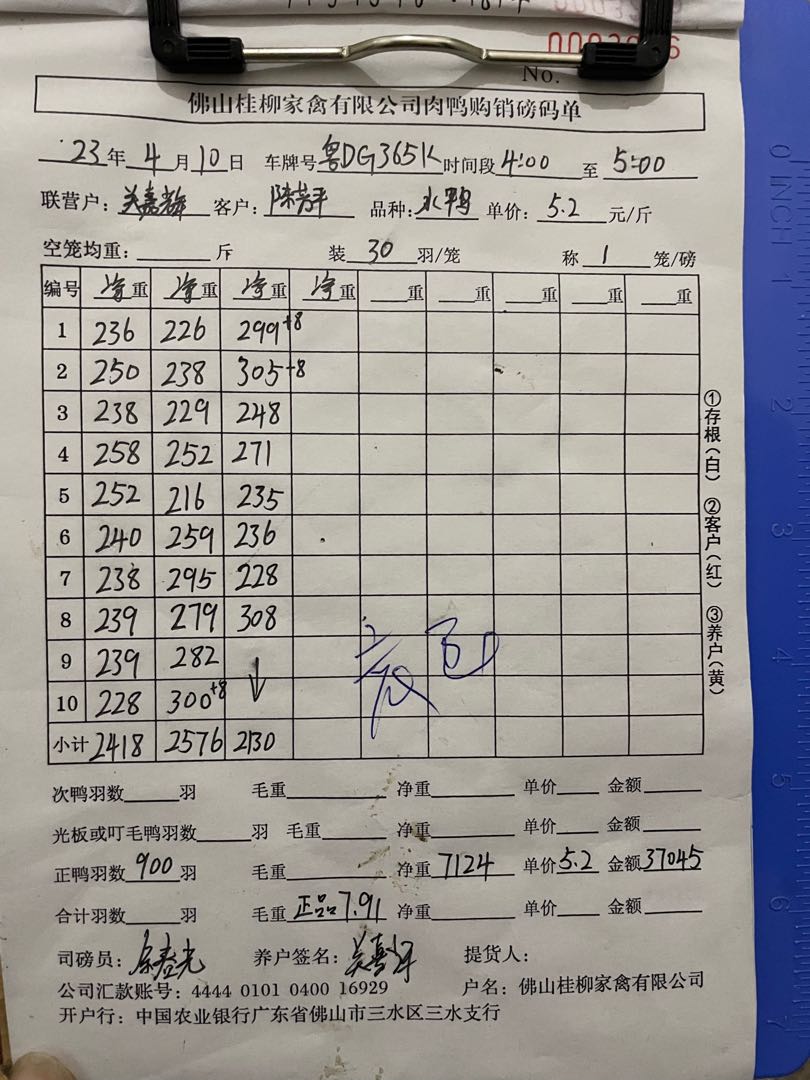 No.
佛山桂柳家禽有限公司肉鸭购销磅码单
23年4月10日 车牌号粤DG365K时间段4:00至5:00
联营户：关嘉辉 客户：陈芳平 品种：水鸭 单价：5.2元/斤
空笼均重：____斤 装30羽/笼 称1笼/磅
编号 净重 净重 净重 净重 ____重 ____重 ____重 ____重 ____重
1 236 226 299+8
2 250 238 305+8
3 238 229 248
4 258 252 271
5 252 216 235
6 240 259 236
7 238 295 228
8 239 279 308
9 239 282
10 228 300+8 ↓
小计 2418 2576 2130
①存根(白) ②客户(红) ③养户(黄)
次鸭羽数____羽 毛重____ 净重____ 单价____ 金额____
光板或叮毛鸭羽数____羽 毛重____ 净重____ 单价____ 金额____
正鸭羽数900羽 毛重____ 净重7124 单价5.2 金额37045
合计羽数____羽 毛重正品7.91 净重____ 单价____ 金额____
司磅员： 养户签名：关嘉辉 提货人：
公司汇款账号：4444 0101 0400 16929 户名：佛山桂柳家禽有限公司
开户行：中国农业银行广东省佛山市三水区三水支行
0 INCH 1 2 3 4 5 6 7